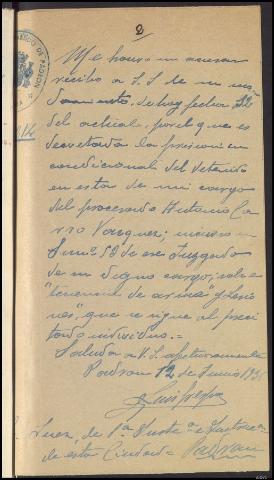 2
Me honro en acusar
recibo a S.S. de su man-
damiento, de hoy fecha 12
del actual, por el que es
decretada la prision in-
condicional del detenido
en esta de mi cargo
del procesado Antonio Ca
rro Vazquez; inciso en
Sumº 58 de ese Juzgado
de su digno cargo, sobre
"tenencia de arma" y Lesio
nes, que se sigue al preci
tado individuo.=
Saluda a V.S. afectuosamente
Padron 12 de Junio 193
Luis
Juez, de 1ª Insta e Instruc
de esta Ciudad= Padron